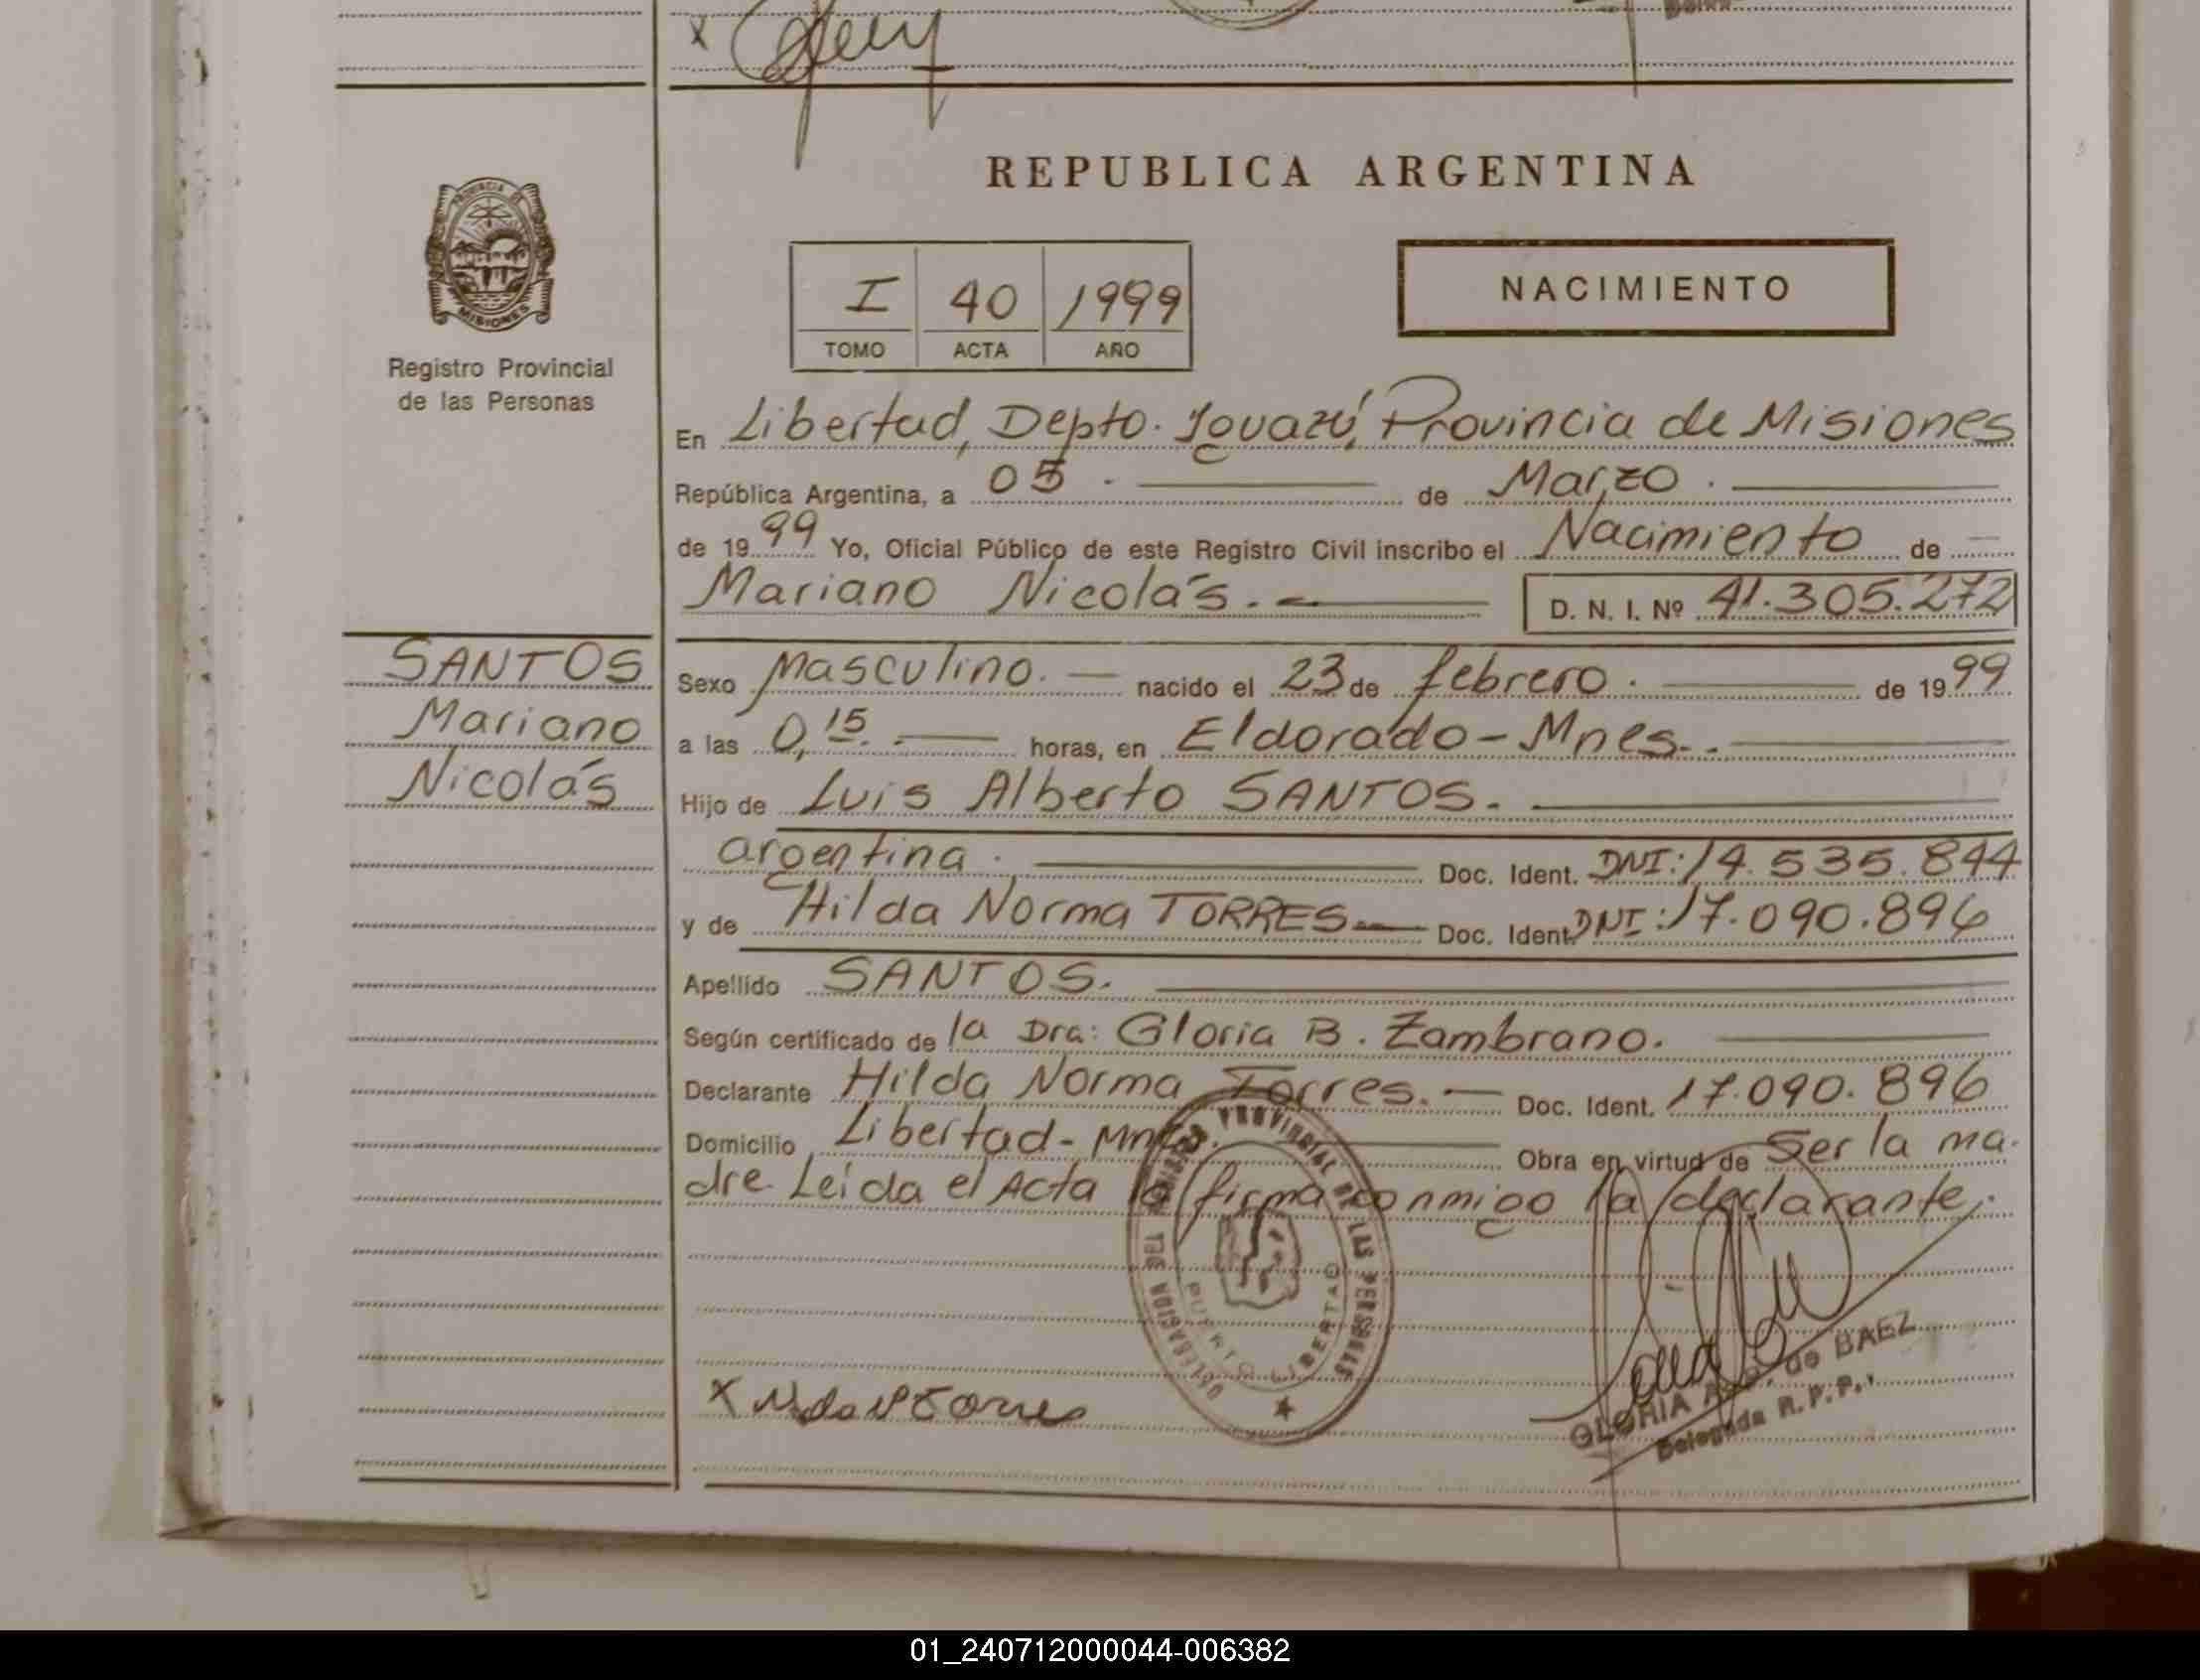 x
REPUBLICA ARGENTINA
PROVINCIA DE
MISIONES
Registro Provincial
de las Personas
I 40 1999
TOMO ACTA AÑO
NACIMIENTO
En Libertad, Depto. Iguazú, Provincia de Misiones
República Argentina, a 05 . de Marzo .
de 1999 Yo, Oficial Público de este Registro Civil inscribo el Nacimiento de
Mariano Nicolás. D. N. I. Nº 41.305.272
SANTOS
Mariano
Nicolás
Sexo Masculino. nacido el 23 de febrero . de 1999
a las 0,15. horas, en Eldorado - Mnes.
Hijo de Luis Alberto SANTOS.
argentina . Doc. Ident. DNI: 14.535.844
y de Hilda Norma TORRES Doc. Ident. DNI: 17.090.896
Apellido SANTOS.
Según certificado de la Dra: Gloria B. Zambrano.
Declarante Hilda Norma Torres. Doc. Ident. 17.090.896
Domicilio Libertad - Mnes. Obra en virtud de Ser la ma-
dre. Leída el Acta la firma conmigo la declarante.
DELEGACION DEL REGISTRO PROVINCIAL DE LAS PERSONAS
PUERTO LIBERTAD
x Hilda N Torres
GLORIA de BAEZ
Delegada R. P. P.
01_240712000044-006382